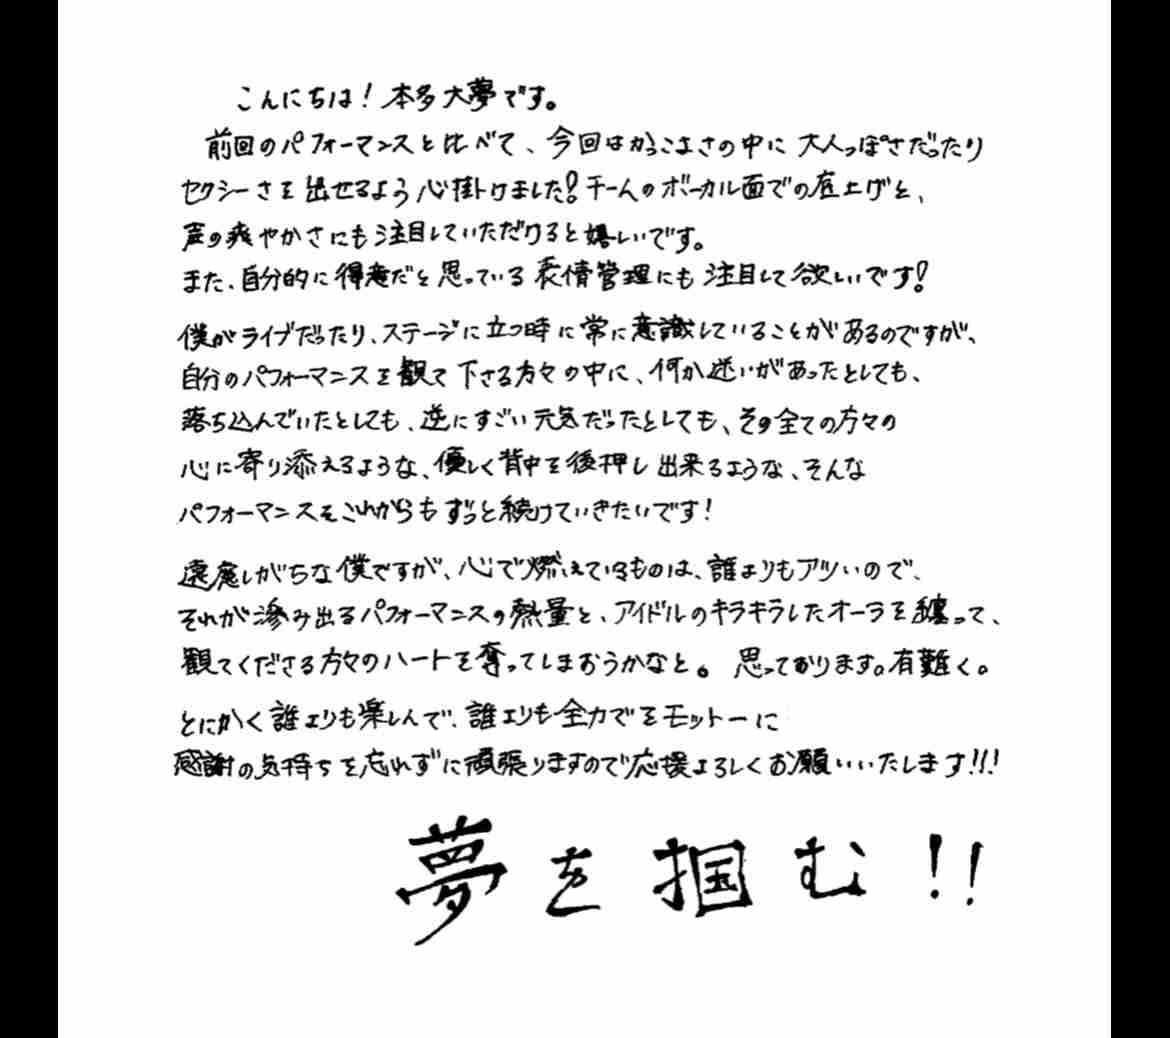 こんにちは!本多大夢です。
前回のパフォーマンスと比べて、今回はかっこよさの中に大人っぽさだったり
セクシーさを出せるよう心掛けました!チームのボーカル面での底上げと、
声の爽やかさにも注目していただけると嬉しいです。
また、自分的に得意だと思っている表情管理にも注目して欲しいです!
僕がライブだったり、ステージに立つ時に常に意識していることがあるのですが、
自分のパフォーマンスを観て下さる方々の中に、何か迷いがあったとしても、
落ち込んでいたとしても、逆にすごい元気だったとしても、その全ての方々の
心に寄り添えるような、優しく背中を後押し出来るような、そんな
パフォーマンスをこれからもずっと続けていきたいです!
遠慮しがちな僕ですが、心で燃えているものは、誰よりもアツいので、
それが滲み出るパフォーマンスの熱量と、アイドルのキラキラしたオーラを纏って、
観てくださる方々のハートを奪ってしまおうかなと。思っております。有難く。
とにかく誰よりも楽しんで、誰よりも全力でをモットーに
感謝の気持ちを忘れずに頑張りますので応援よろしくお願いいたします!!!
夢を掴む!!